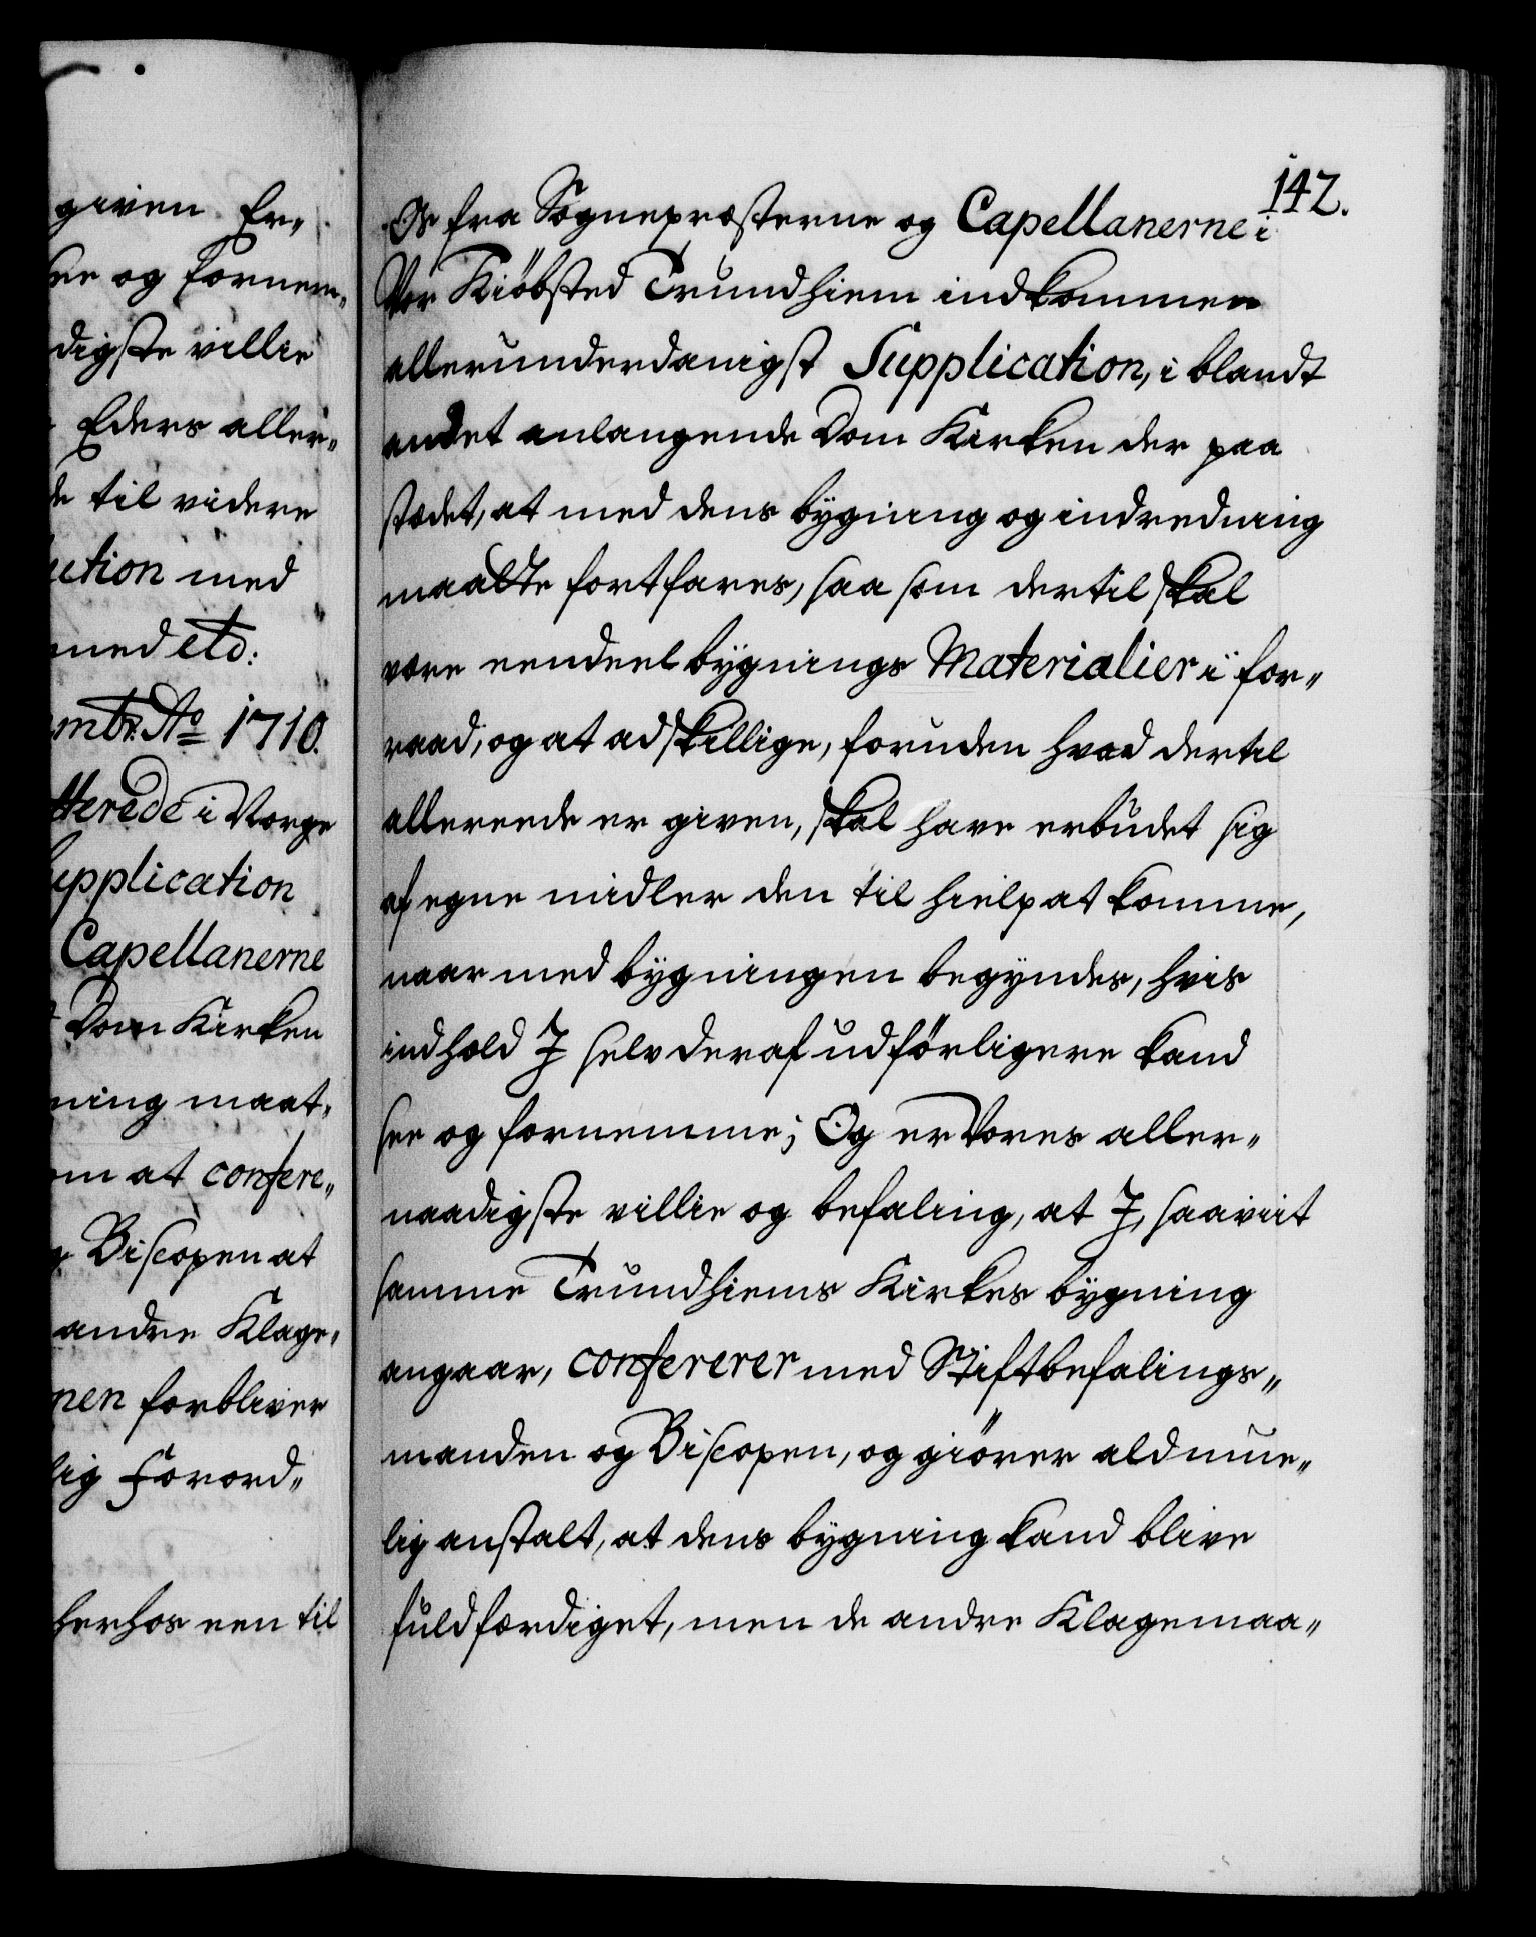 given. Er„
see og fornem„
digste villie
Eders aller„
de til videre
ction med
med etc:
mbr. Ao 1710.
Herede i Norge
upplication
Capellanerne
Dom Kirken
ning maat„
om at confere„
Biscopen at
andre Klage„
nen forbliver
lig Forord„
herhos een til
142.
Os fra Sognepræsterne og Capellanerne i
Vor Kiöbsted Trundhiem indkommen
allerunderdanigst Supplication, i blandt
andet anlangende Dom Kirken der paa
stædet, at med dens bygning og indredning
maatte fortfares, saa som dertil skal
være eendeel bygnings Materialier i for„
raad, og at adskillige, foruden hvad dertil
allereede er given, skal have erbudet sig
af egne midler den til hielp at komme,
naar med bygningen begyndes, hvis
indhold I selv deraf udförligere kand
see og fornemme; Og er Vores aller„
naadigste villie og befaling, at I, saavit
samme Trundhiems Kirkes bygning
angaar, confererer med Stiftbefalings„
manden og Biscopen, og giörer ald mue„
lig anstalt, at dens bygning kand blive
fuldfærdiget, men de andre Klagemaa„